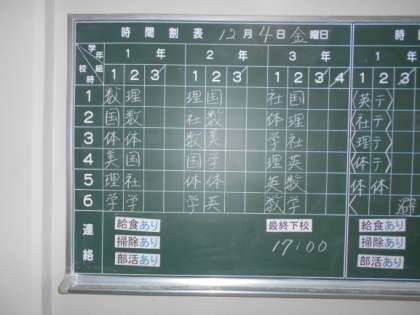 時間割表 12月4日金曜日 時
学年 組 校時 1年 2年 3年 1
1 2 3 1 2 3 1 2 3 4 1 2 3
1 数 理 理 国 社 国 英テ
2 国 数 社 数 体 理 社テ
3 体 体 数 美 学 社 理テ
4 美 国 国 学 理 英 体テ
5 理 社 体 体 英 数 体 体
6 学 学 学 英 数 学 避
連絡 給食あり 最終下校 給食あり
掃除あり 17:00 掃除あり
部活あり 部活あり